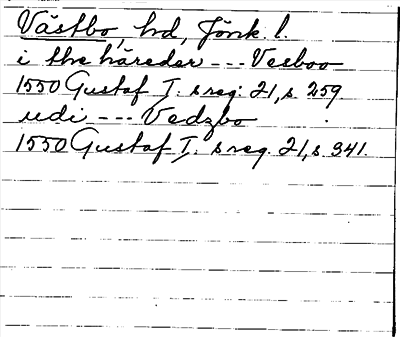 Västbo, hd, Jönk. l.
i the häreder --- Vesboo
1550 Gustaf I. s reg. 21, s 259.
udi --- Vedzbo
1550 Gustaf I. s reg. 21, s. 341.